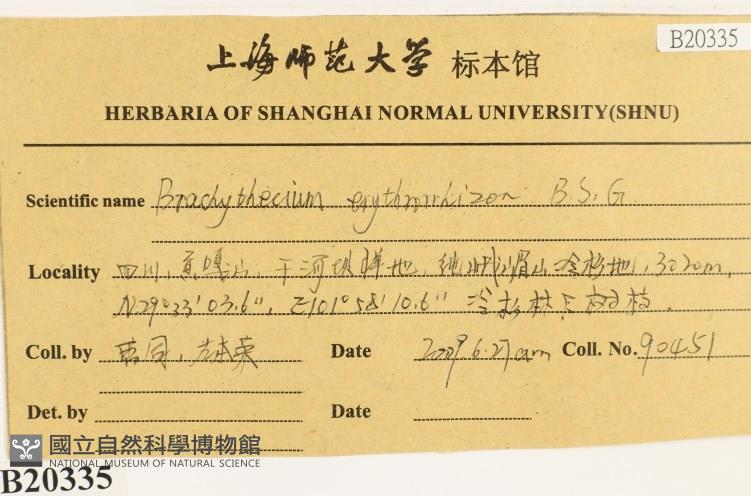 B20335
上海师范大学 标本馆
HERBARIA OF SHANGHAI NORMAL UNIVERSITY(SHNU)
Scientific name Brachythecium erythrorrhizon B.S.G.
Locality 四川, 贡嘎山, 干河坝样地, 峨眉山冷杉地, 3020m,
N29°33'03.6", E101°58'10.6" 冷杉林下树枝.
Coll. by 曹同, Date 2009.6.27 am Coll. No. 90451
Det. by Date
國立自然科學博物館
NATIONAL MUSEUM OF NATURAL SCIENCE
B20335